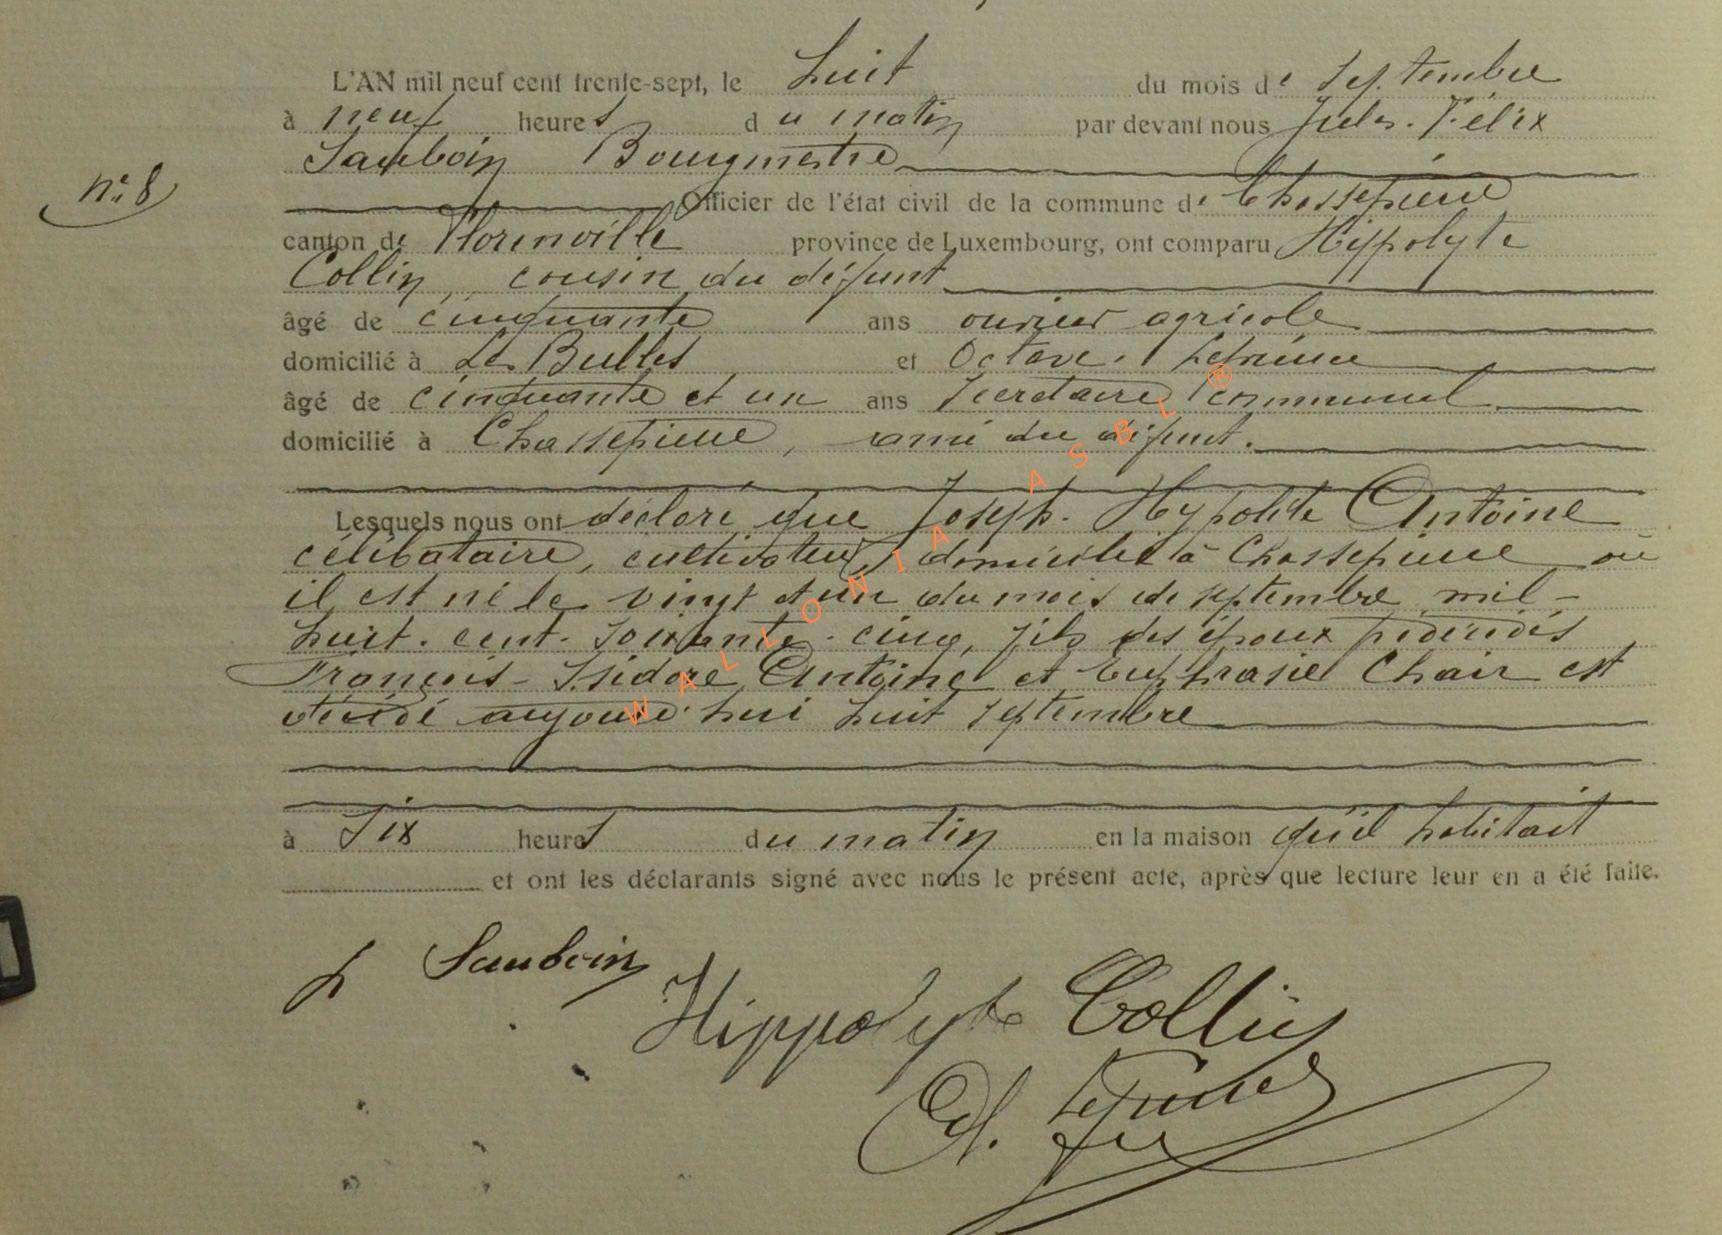 L'AN mil neuf cent trente-sept, le huit du mois de septembre
à neuf heures du matin par devant nous Jules. Félix
Sauboin Bourgmestre
n° 8
Officier de l'état civil de la commune de Chassepierre
canton de Florenville province de Luxembourg, ont comparu Hippolyte
Collin, cousin du défunt
âgé de cinquante ans ouvrier agricole
domicilié à Les Bulles et Octave.
âgé de cinquante et un ans secrétaire communal
domicilié à Chassepierre, ami du défunt.
Lesquels nous ont déclaré que Joseph. Hypolite Antoine
célibataire, cultivateur, domicilié à Chassepierre où
il est né le vingt et un du mois de septembre mil-
huit. cent. soixante. cinq, fils des époux prédécédés
François-Isidore Antoine et Euphrasie Chair est
décédé aujourd'hui huit septembre
à six heures du matin en la maison qu'il habitait
et ont les déclarants signé avec nous le présent acte, après que lecture leur en a été faite.
Sauboin
Hippolyte Collin
WALLONIA ASBL ®